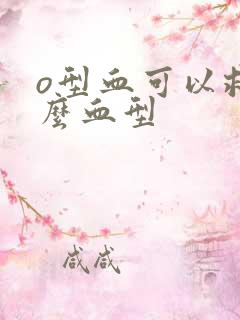 o型血可以
麼血型
咸咸